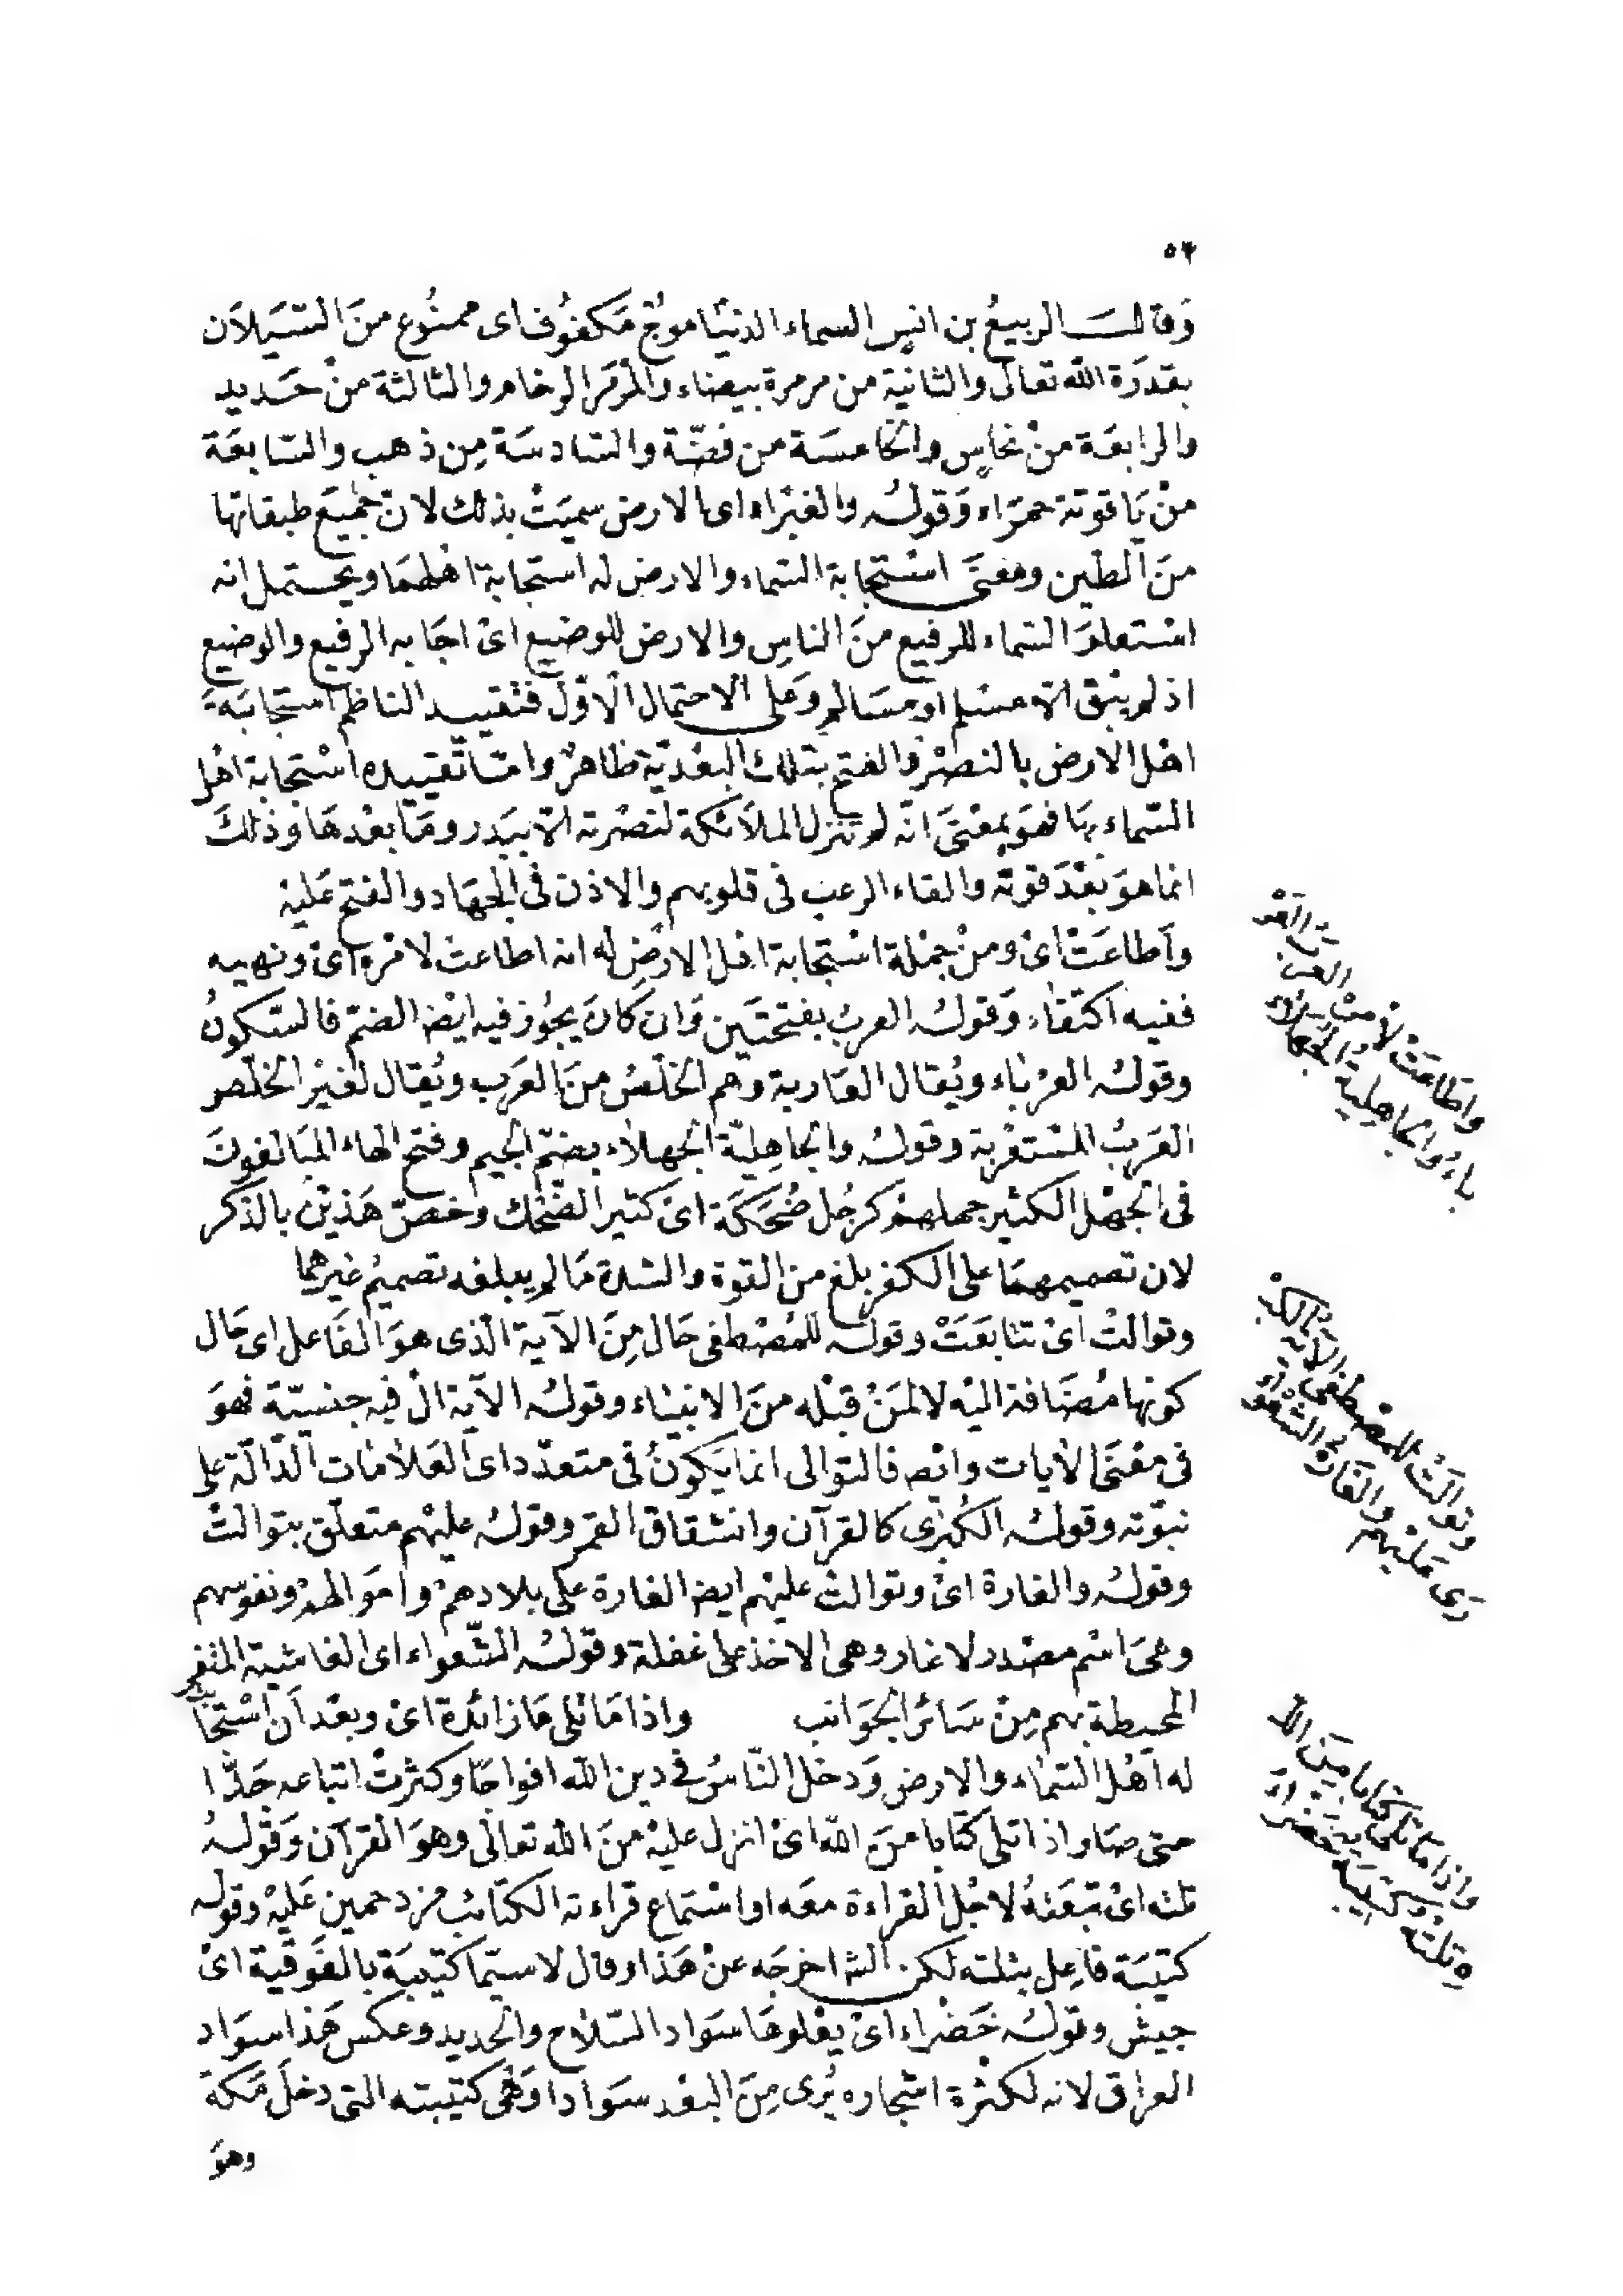 ٥٢
وقالــ الربيعُ بن انسٍ السماء الدنيا موجٌ مَكفوُف اى ممنُوع منَ السَّيَلاَن
بقدرَة الله تعالى والثانية من مرمرة بيضاء والمرمَر الرخام والثالثة منْ حَديد
والرابعَة منْ نحاسٍ والخامسَة من فضّة والسّادسَة مِن ذهب والسّابعَة
منْ يَاقوتة حمرَاء وَقولُه والغبْراء اى الارض سميَتْ بذلك لان جميَع طبقاتها
منَ الطّين ومعنَى استجابة السّماء والارض له استجابة اهلهمَا ويحتمل انه
اسْتعلَمَ السّماء للرفيع منَ الناسِ والارض للوضيع اىْ اجَابه الرفيع والوضيع
اذ لم يبْق الاّ مسْلم او مسَالم وَعلى الاحتمال الاوّل فتقييد الناظم استجَابَة
اهْل الارض بالنصْر والفتح بتلك البعْديّة ظاهرٌ وامّا تقييده اسْتجابة اهْل
السّماء بهَا فهوَ بمعْنىَ انّه لم تنزل الملاَئكة لنصْرته الاّ ببَدر ومَا بعْدهَا وذلكَ
انما هوَ بَعْدَ قوته والقاء الرعب فى قلوبهم والاذن فى الجهَاد والفتح عَليْه
وأطاعَتْ اىْ ومنْ جمْلة اسْتجابة اهْل الارض له انه اطاعتْ لامْره اىْ ونهيه
ففيه اكتفاء وَقولُه العربُ بفتحتَين وَان كانَ يجُوز فيه ايْضا الضمّ فالسّكونُ
وقولُه العرْبَاء ويُقال العَاربة وهم الخلّصُ منَ العَرَب ويُقال لغيْر الخلّص
العَربُ المسْتعْربة وقولُه والجاهِليّة الجهلاَء بضمّ الجيم وفتح الهاء المبَالغونَ
فى الجَهْل الكثير جهلهمْ كرجُل ضُحَكَة اىْ كثير الضّحْك وخصّ هَذيْن بالذكر
لان تصميمهمَا على الكفر بلغ من القوة والشدة مَا لم يبلغه تصميمُ غيرهما
وتوالتْ اىْ تتابَعَتْ وقولُه للمُصْطفى حَال مِنَ الآية الّذى هوَ الفَاعل اى حَال
كونها مُضَافة اليْه لا لمَنْ قبْله منَ الانبيَاء وقولُه الآية الْ فيه جنسيّة فهوَ
فى معْنَى الايات وايْضا فالتوالى انما يَكونُ فى متعدّد اى العَلاَمَات الدّالّة على
نبوّته وقولُه الكُبْرى كالقرآن وانشقاق القمر وقولُه عليْهم متعلّق بتوالتْ
وقولُه والغارة اىْ وتوالتْ عليْهم ايضا الغارة على بلادهمْ وامَوالهمْ ونفوسهم
وهىَ اسْم مصْدر لاغار وهى الاخذ على غفلة وقولُه الشّعواء اى الفاشية المتفر
المحيطة بهم مِنْ سَائر الجَوَانب واذا مَا تلى مَا زائدة اىْ وبعْد اَن اسْتجَا
له اَهْل السّمَاء والارض وَدخل النّاسُ فى دين الله افواجَا وكثرتْ اتباعه جَدَّا
متى صَار اذا تلى كتَابا منَ الله اىْ انزل عليْه منَ الله تعالى وهوَ القرآن وَقولُه
تلته اىْ تبعَتهُ لاجْل القراءة معَه او اسْتماع قراءته الكتَائب مزدحمين عَليْه وقوله
كتيبَة فاعِل بتلته لكن الشا اخرجَه عنْ هَذا وقال لاسيّما كتيبَة بالفَوقيّة اىْ
جيش وقولُه خَضْراء اىْ يعْلوهَا سَواد السّلاَح والحديد وعكس هَذا سوَاد
العراق لانه لكثرة اشجاره يُرى مِنَ البعْد سَوَادا وَهْى كتيبته التى دخلَ مَكة
وهوَ
وَاطَاعَتْ لأمرْه العَرَبُ العَرْ
بَاءُ والجَاهِليةُ الجُهَلاَءُ
وَتوَالَتْ للمصْطفَى الآيَة الكبْ
رَى عَليْهم وَالغَارَة الشعْوَاء
وَاذا مَا تلى كتَابا مِنَ الله
هِ تلتهُ كَتيبَة خَضْرَاءُ